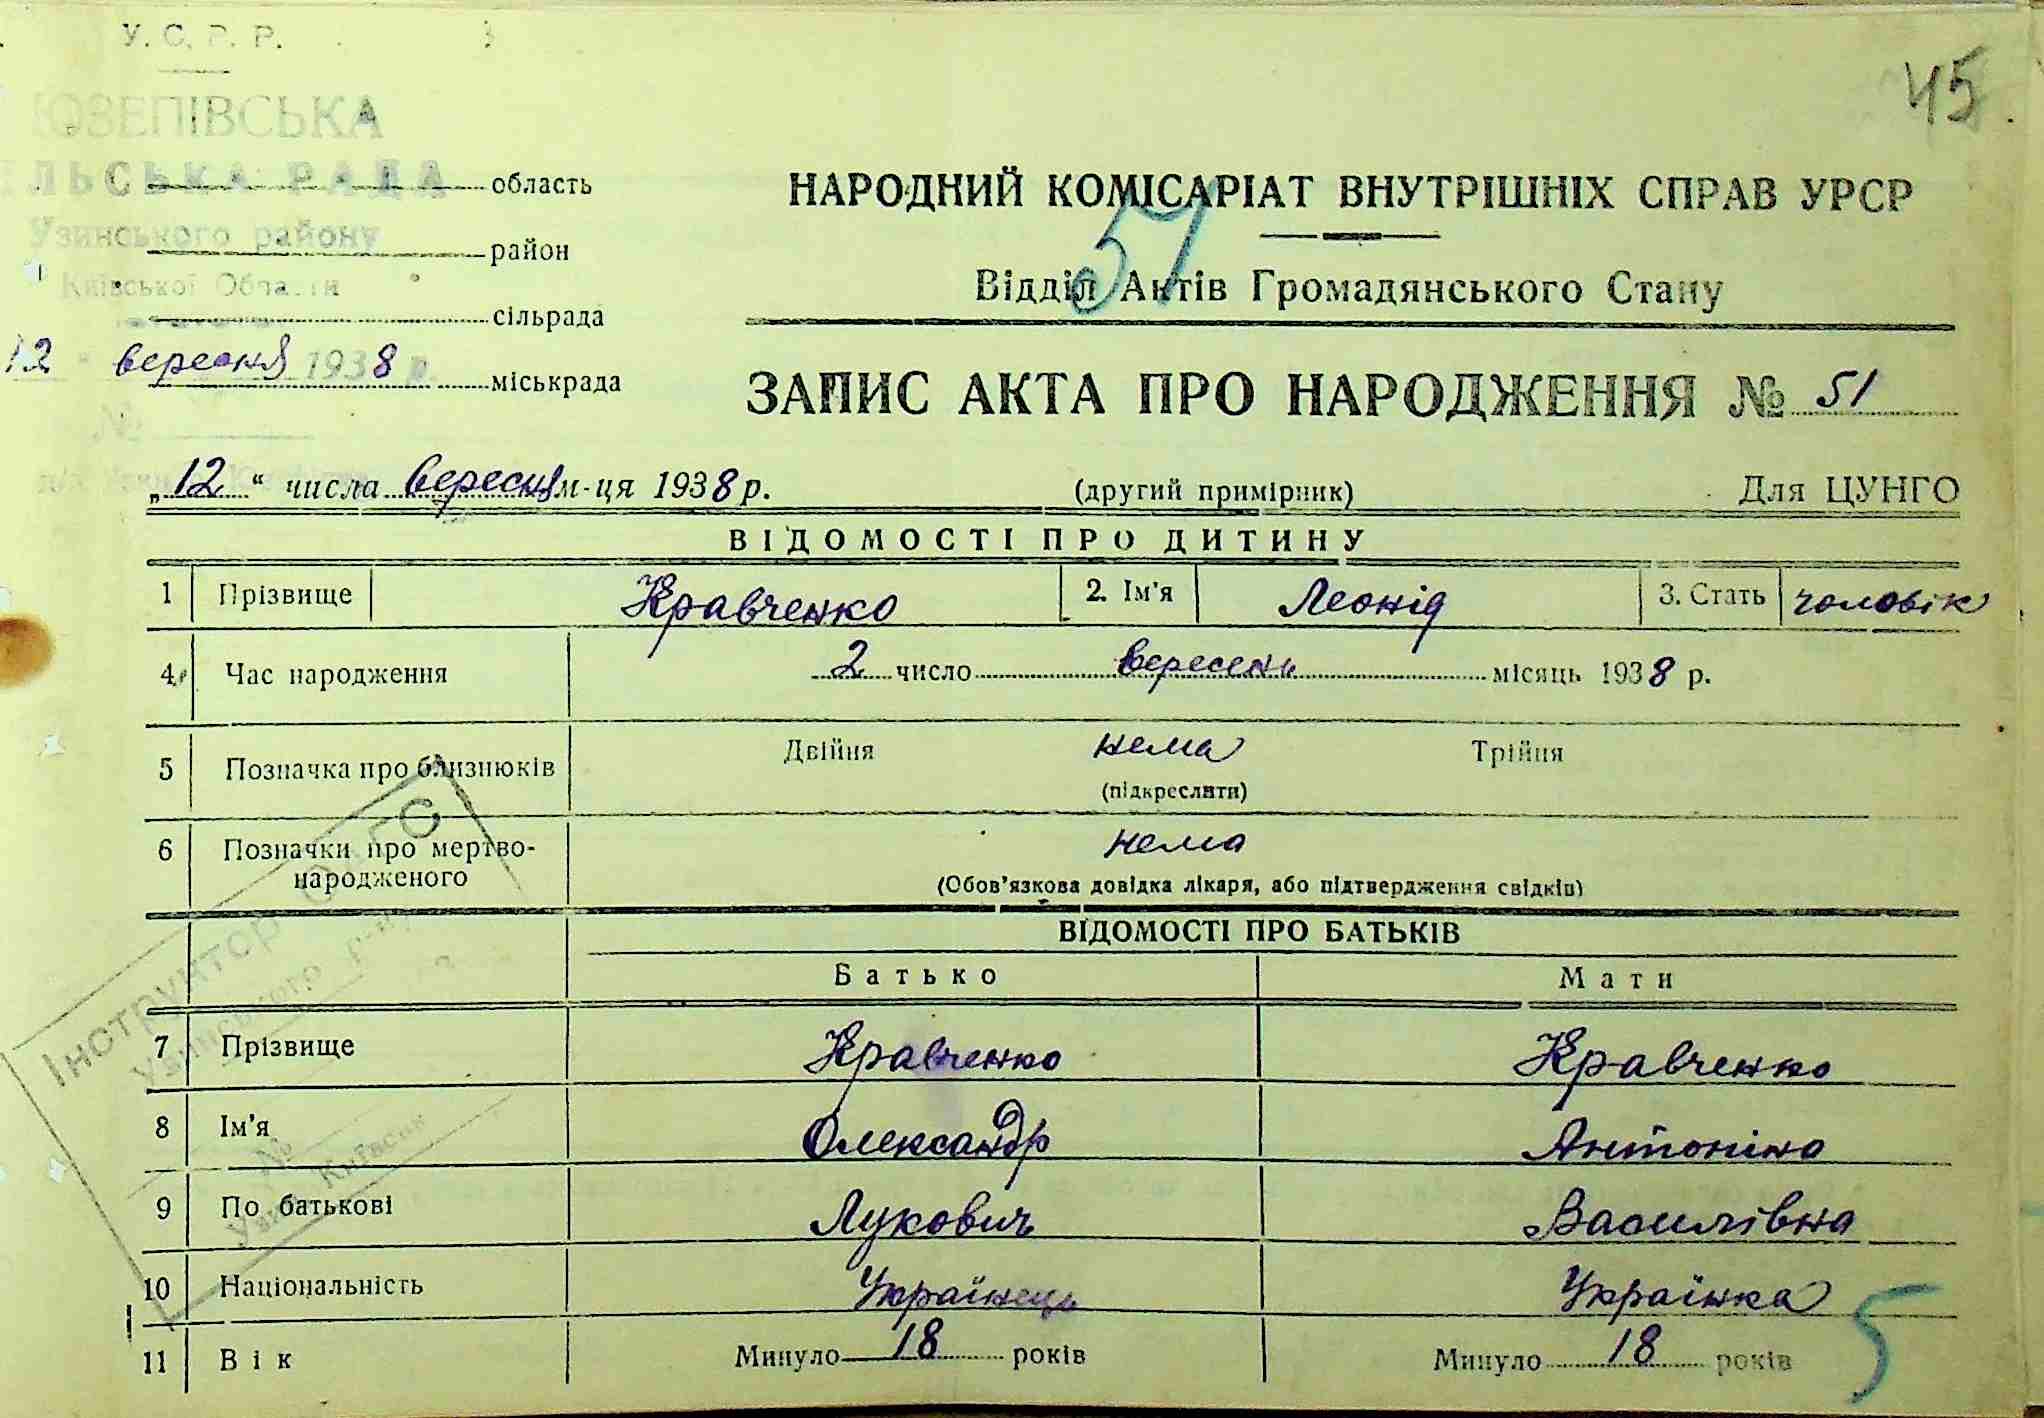 У. С. Р. Р.
45
ЮЗЕПІВСЬКА
ЛЬСЬКА РАДА
область
НАРОДНИЙ КОМІСАРІАТ ВНУТРІШНІХ СПРАВ УРСР
Узинського району
район
51
Київської Області
Відділ Актів Громадянського Стану
сільрада
12 " вересня 1938 р.
міськрада
ЗАПИС АКТА ПРО НАРОДЖЕННЯ № 51
№
„12“ числа вересня м-ця 1938 р. (другий примірник) Для ЦУНГО
ВІДОМОСТІ ПРО ДИТИНУ
1 Прізвище Кравченко 2. Ім'я Леонід 3. Стать чоловік
4. Час народження 2 число вересень місяць 1938 р.
5 Позначка про близнюків Двійня нема Трійня
(підкреслити)
6 Позначки про мертво-
народженого
нема
(Обов'язкова довідка лікаря, або підтвердження свідків)
ВІДОМОСТІ ПРО БАТЬКІВ
Батько Мати
7 Прізвище Кравченко Кравченко
8 Ім'я Олександр Антоніна
9 По батькові Лукович Василівна
10 Національність Українець Українка
11 Вік Минуло 18 років Минуло 18 років
5
Інструктор
Узинського р-ну
№